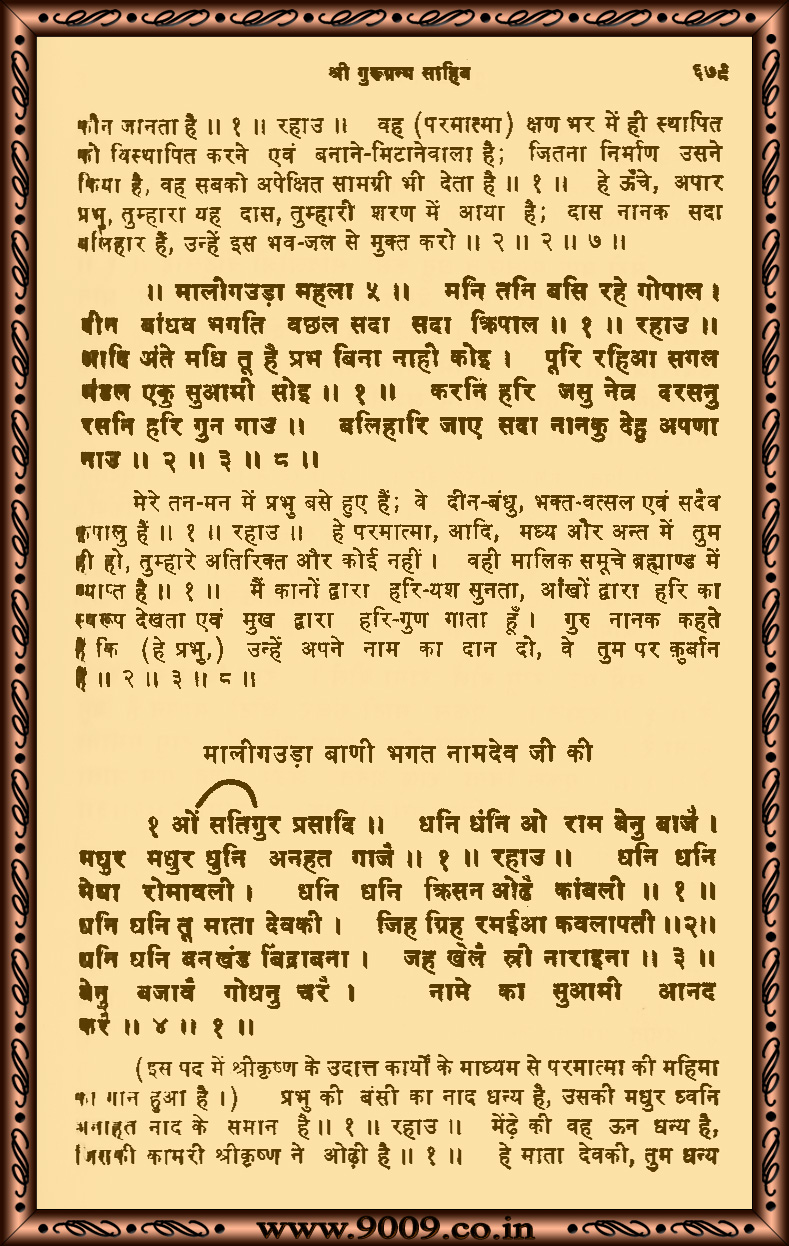 श्री गुरूग्रन्थ साहिब ६७९
कौन जानता है ॥ १ ॥ रहाउ ॥ वह (परमात्मा) क्षण भर में ही स्थापित
को विस्थापित करने एवं बनाने-मिटानेवाला है; जितना निर्माण उसने
किया है, वह सबको अपेक्षित सामग्री भी देता है ॥ १ ॥ हे ऊँचे, अपार
प्रभु, तुम्हारा यह दास, तुम्हारी शरण में आया है; दास नानक सदा
बलिहार हैं, उन्हें इस भव-जल से मुक्त करो ॥ २ ॥ २ ॥ ७ ॥
॥ मालीगउड़ा महला ५ ॥ मनि तनि बसि रहे गोपाल ।
दीन बांधव भगति वछल सदा सदा क्रिपाल ॥ १ ॥ रहाउ ॥
आदि अंते मधि तू है प्रभ बिना नाही कोइ । पूरि रहिआ सगल
मंडल एकु सुआमी सोइ ॥ १ ॥ करनि हरि जसु नेत्र दरसनु
रसनि हरि गुन गाउ ॥ बलिहारि जाए सदा नानकु देहु अपणा
नाउ ॥ २ ॥ ३ ॥ ८ ॥
मेरे तन-मन में प्रभु बसे हुए हैं; वे दीन-बंधु, भक्त-वत्सल एवं सदैव
कृपालु हैं ॥ १ ॥ रहाउ ॥ हे परमात्मा, आदि, मध्य और अन्त में तुम
ही हो, तुम्हारे अतिरिक्त और कोई नहीं । वही मालिक समूचे ब्रह्माण्ड में
व्याप्त है ॥ १ ॥ मैं कानों द्वारा हरि-यश सुनता, आँखों द्वारा हरि का
स्वरूप देखता एवं मुख द्वारा हरि-गुण गाता हूँ । गुरु नानक कहते
हैं कि (हे प्रभु,) उन्हें अपने नाम का दान दो, वे तुम पर क़ुर्बान
हैं ॥ २ ॥ ३ ॥ ८ ॥
मालीगउड़ा बाणी भगत नामदेव जी की
१ ओं सतिगुर प्रसादि ॥ धनि धंनि ओ राम बेनु बाजै ।
मधुर मधुर धुनि अनहत गाजै ॥ १ ॥ रहाउ ॥ धनि धनि
मेघा रोमावली । धनि धनि क्रिसन ओढै कांबली ॥ १ ॥
धनि धनि तू माता देवकी । जिह ग्रिह रमईआ कवलापती ॥२॥
धनि धनि बनखंड बिंद्राबना । जह खेलै स्री नाराइना ॥ ३ ॥
बेनु बजावै गोधनु चरै । नामे का सुआमी आनद
करै ॥ ४ ॥ १ ॥
(इस पद में श्रीकृष्ण के उदात्त कार्यों के माध्यम से परमात्मा की महिमा
का गान हुआ है ।) प्रभु की बंसी का नाद धन्य है, उसकी मधुर ध्वनि
अनाहृत नाद के समान है ॥ १ ॥ रहाउ ॥ मेंढ़े की वह ऊन धन्य है,
जिसकी कामरी श्रीकृष्ण ने ओढ़ी है ॥ १ ॥ हे माता देवकी, तुम धन्य
www.9009.co.in